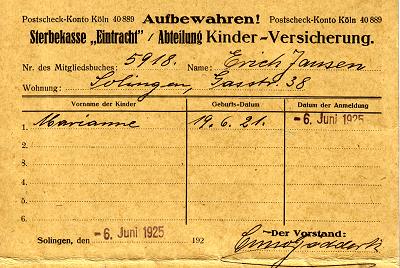 Postscheck-Konto Köln 40 889 Aufbewahren! Postscheck-Konto Köln 40 889
Sterbekasse „Eintracht" / Abteilung Kinder-Versicherung.
Nr. des Mitgliedsbuches: 5918. Name: Erich Jansen
Wohnung: Solingen, Gasstr. 38
Vorname der Kinder Geburts-Datum Datum der Anmeldung
1. Marianne 19. 6. 21. -6. Juni 1925
2.
3.
4.
5.
6.
Solingen, den -6. Juni 1925 192
Der Vorstand: